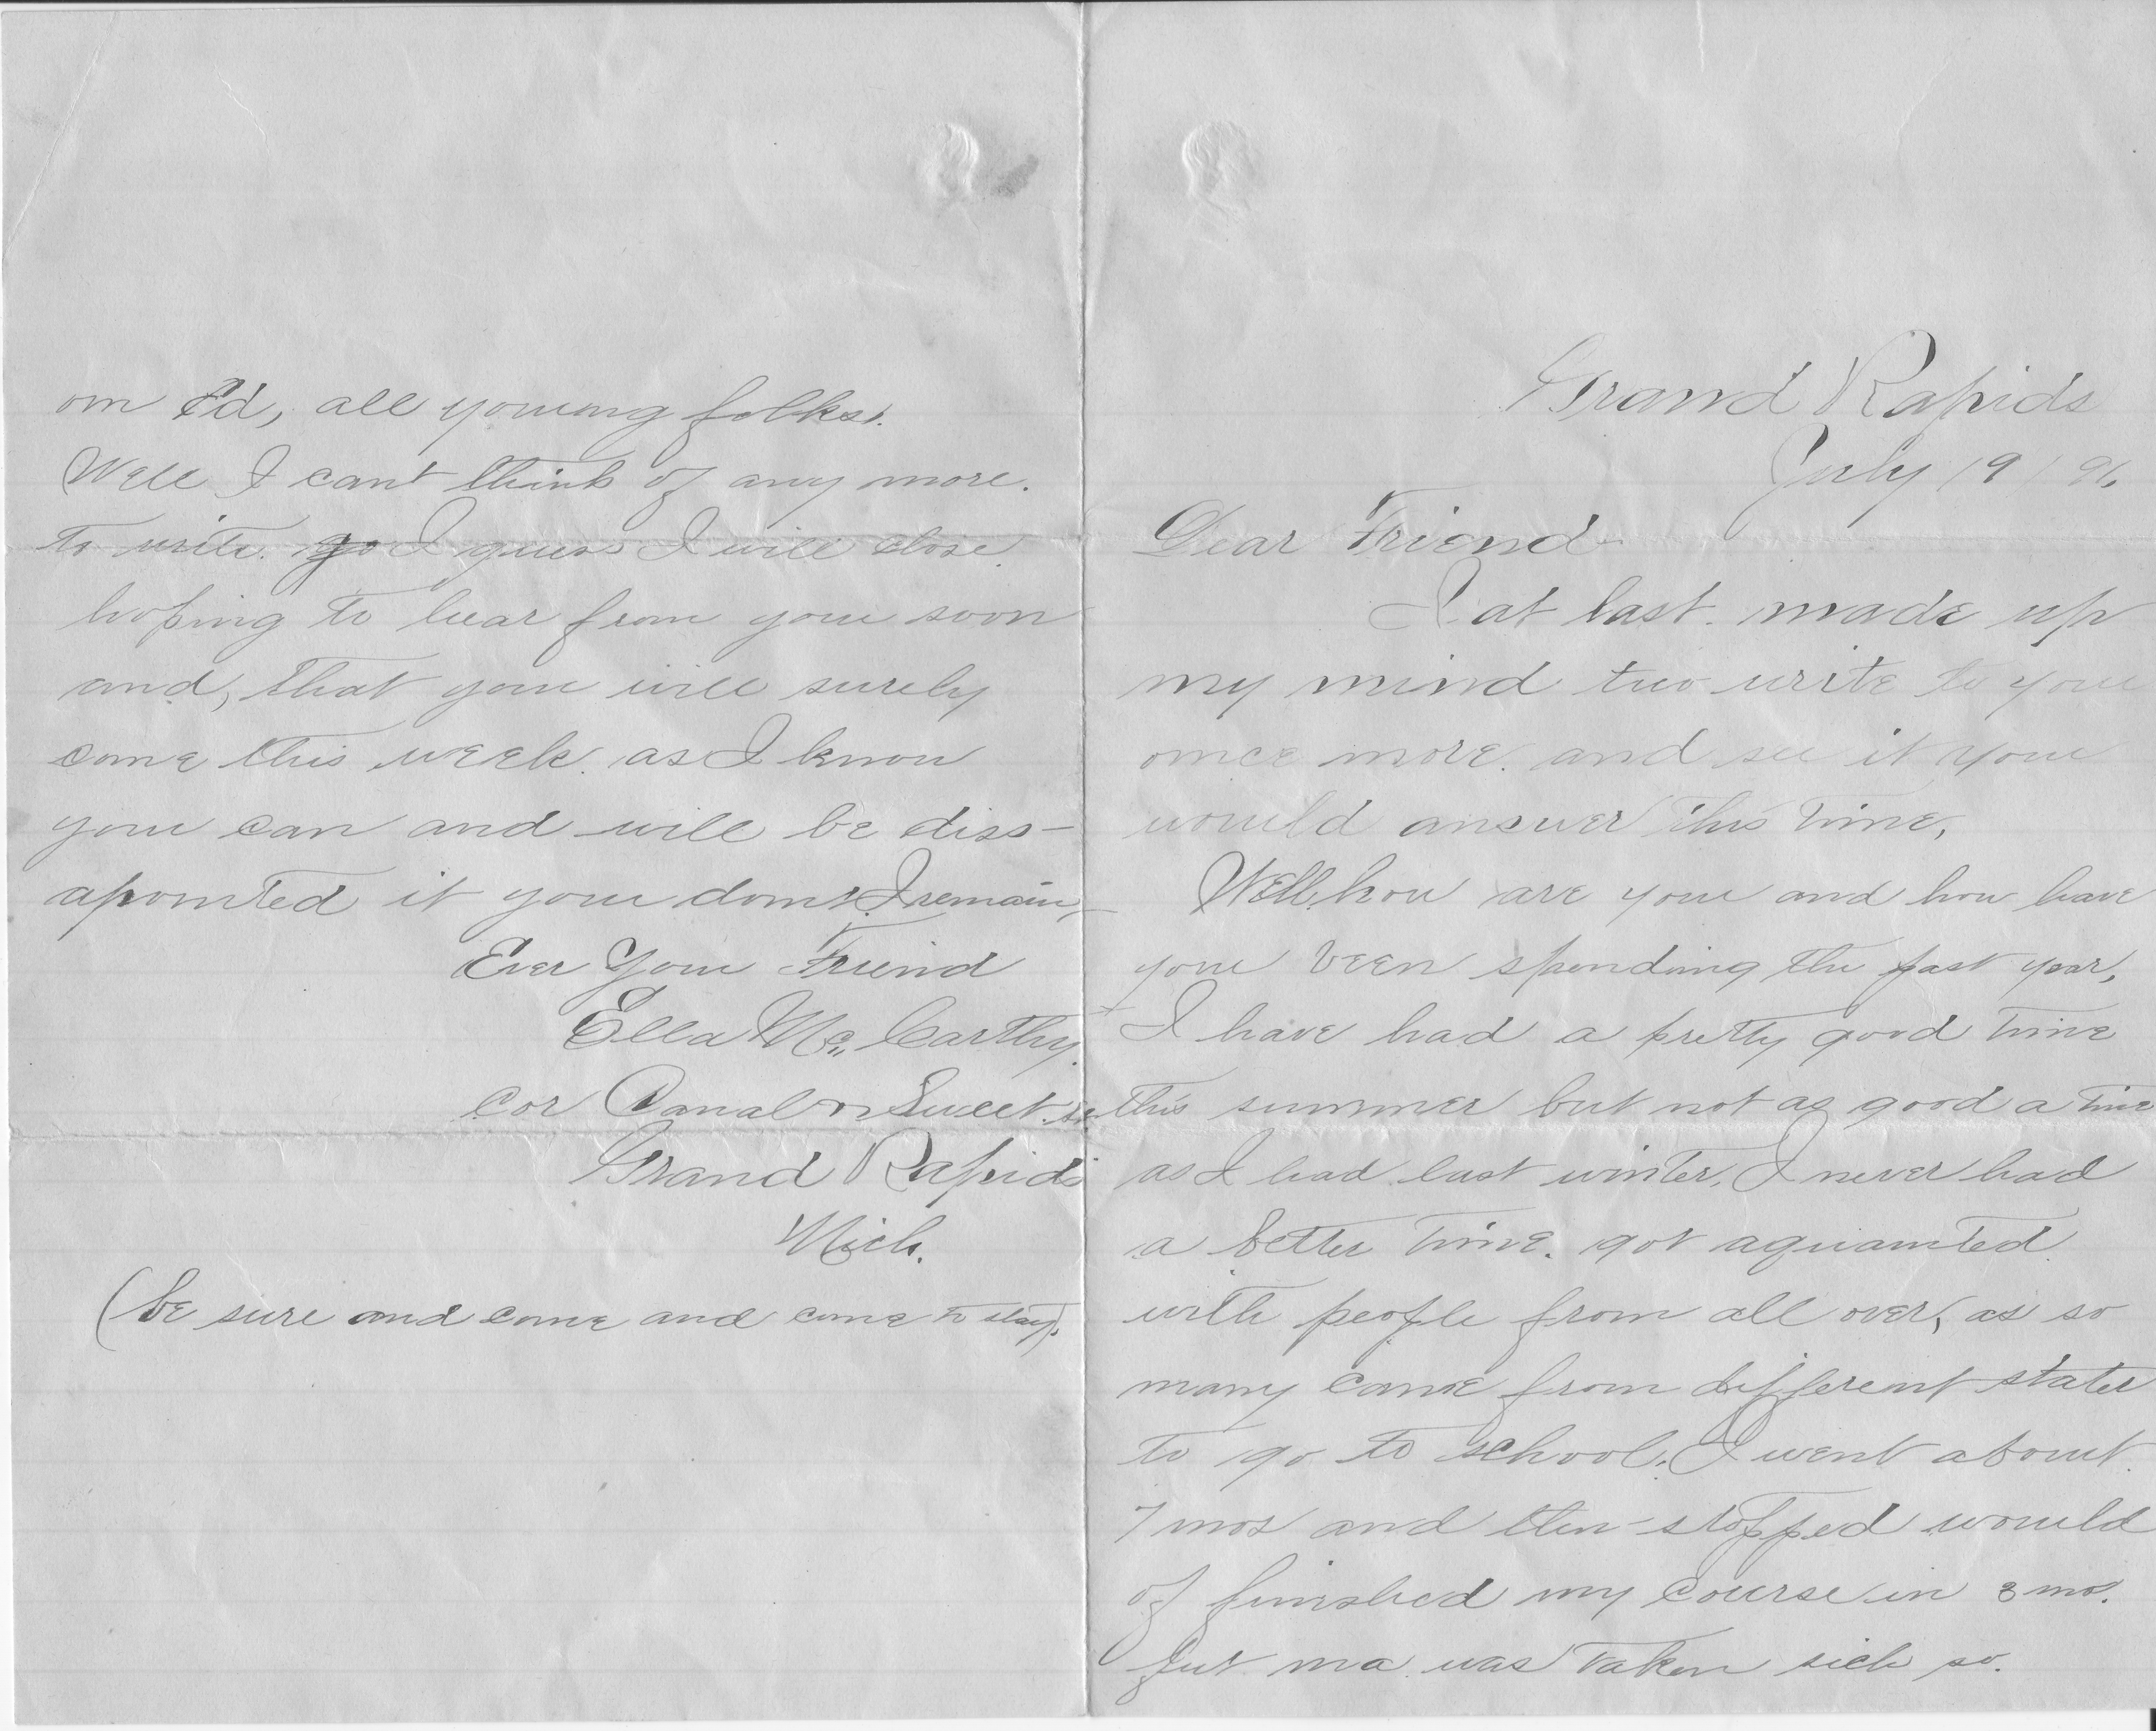 Grand Rapids
July 19 / 91.
Dear Friend
I at last. made up
my mind two write to you
once more. and see if you
would answer this time,
Well, how are you and how have
you been spending the past year,
I have had a pretty good time
this summer but not as good a time
as I had last winter, I never had
a better time. got aquainted
with people from all over, as so
many came from different states
to go to school. I went about
7 mos and then stopped would
of finished my course in 3 mos.
but ma was taken sick so.
on Ed, all young folks.
Well I cant think of any more.
to write. so I guess I will close.
hoping to hear from you soon
and, that you will surely
come this week. as I know
you can and will be diss-
apointed if you dont. I remain,
Ever Your Friend
Ella Mc,, Carthy.
Cor Canal n Sweet st.
Grand Rapids
Mich.
(be sure and come and come to stay).